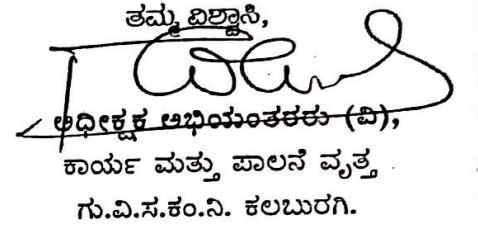 ತಮ್ಮ ವಿಶ್ವಾಸಿ,
ಅಧೀಕ್ಷಕ ಅಭಿಯಂತರರು (ವಿ),
ಕಾರ್ಯ ಮತ್ತು ಪಾಲನೆ ವೃತ್ತ
ಗು.ವಿ.ಸ.ಕಂ.ನಿ. ಕಲಬುರಗಿ.